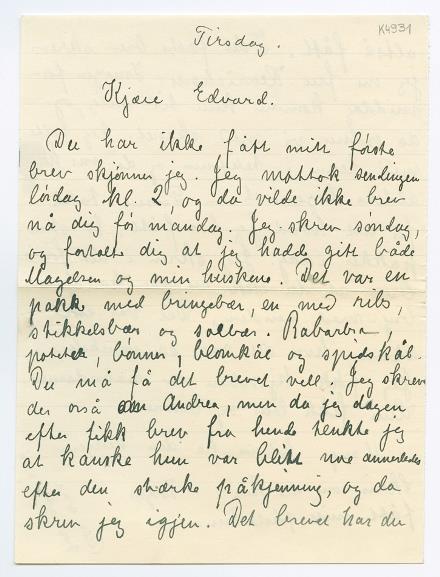 K4931
Tirsdag.
Kjære Edvard.
Du har ikke fått mitt første
brev skjønner jeg. Jeg mottok sendingen
lørdag kl. 2, og da vilde ikke brev
nå dig før mandag. Jeg skrev søndag,
og fortalte dig at jeg hadde gitt både
Magelsen og min huskone. Det var en
pakk med bringebær, en med ribs,
stikkelsbær og solbær. Rabarbra,
poteter, bønner, blomkål og spidskål.
Du må få det brevet vell. Jeg skrev
der også om Andrea, men da jeg dagen
efter fikk brev fra hende tenkte jeg
at kanske hun var blitt noe annerledes
efter den stærke påkjenning, og da
skrev jeg igjen. Det brevet har du